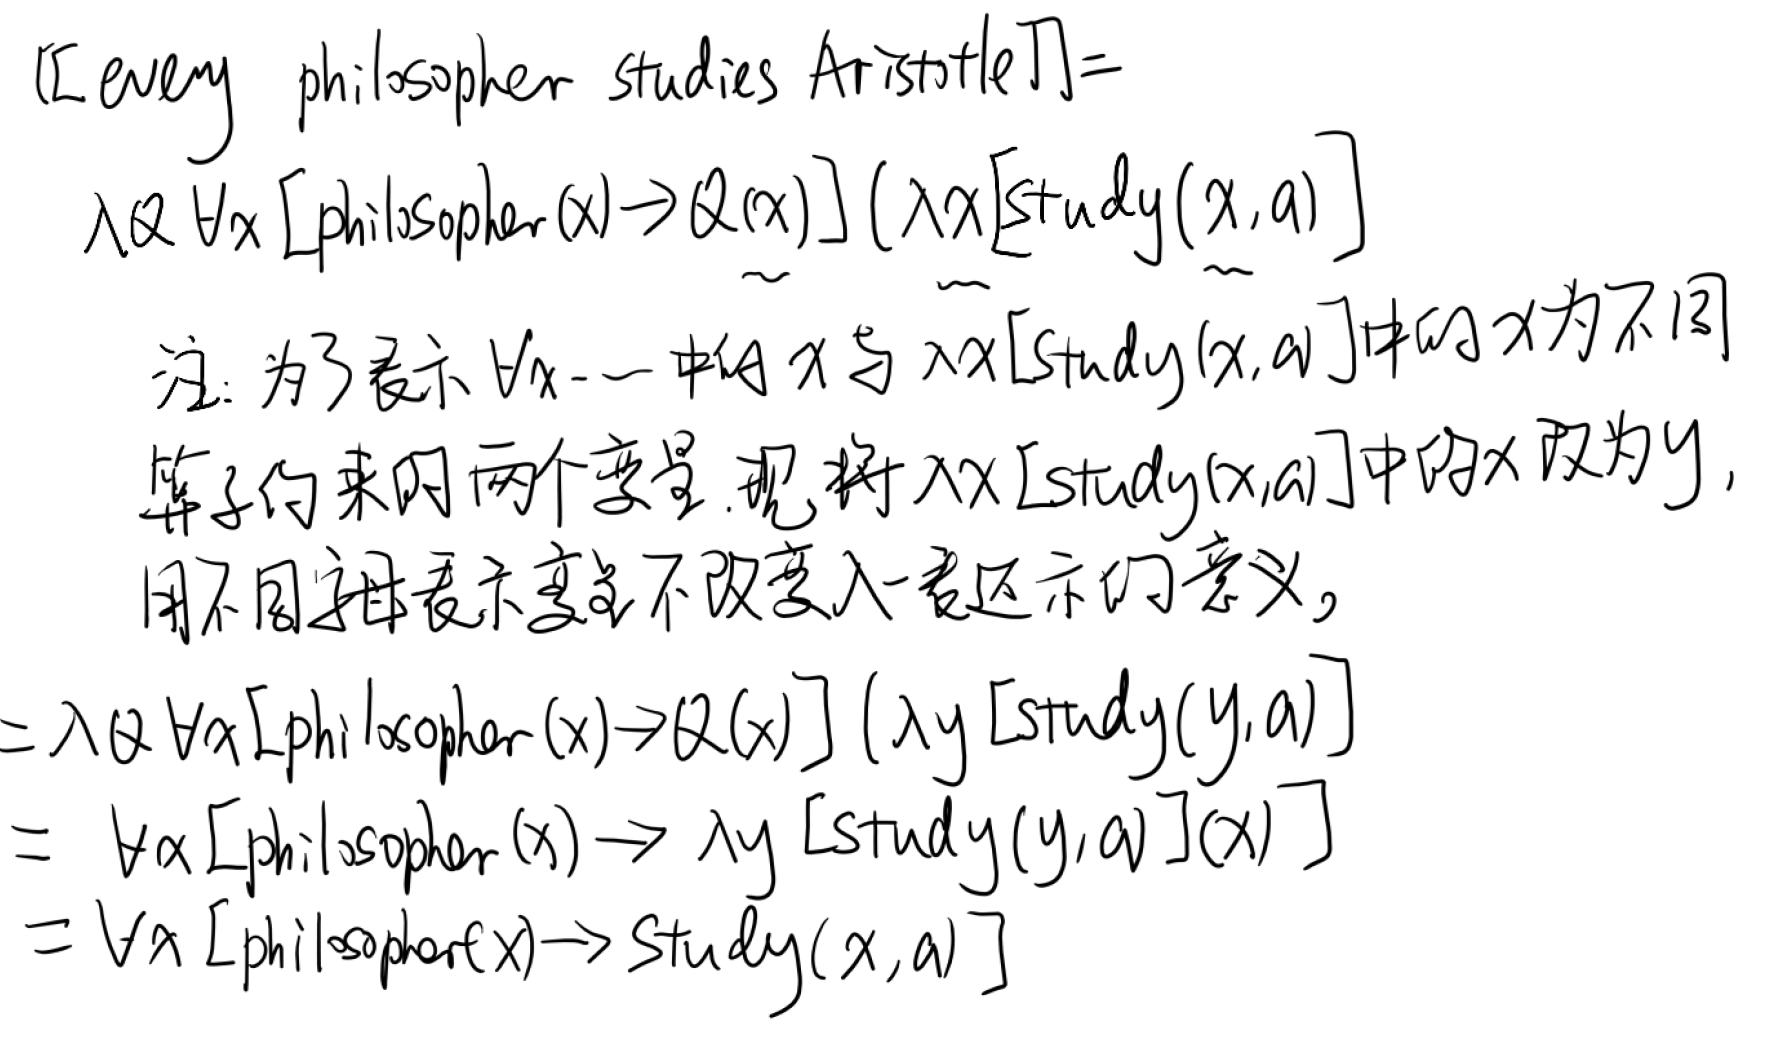 ⟦every philosopher studies Aristotle⟧=
λQ ∀x [philosopher(x)→Q(x)] (λx[study(x,a)]
注: 为了表示 ∀x--- 中的 x 与 λx[study(x,a)]中的 x 为不同
算子约束的两个变量.现将 λx[study(x,a)]中的x 改为y,
用不同字母表示变量不改变λ-表达示的意义。
= λQ ∀x[philosopher(x)→Q(x)] (λy [study(y,a)]
= ∀x [philosopher(x) → λy [study(y,a)](x)]
= ∀x [philosopher(x)→ study(x,a)]